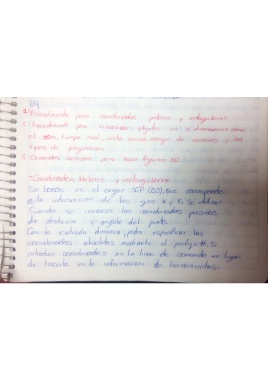 09
1. Procedimiento para coordenadas polares y rectangulares
2. Procedimiento para visualizar objetos en 3 dimensiones como
el zoom, tiempo real, varias manejo de cámaras y
tipos de proyección
3. Comandos básicos para hacer figuras 3D
Coordenadas Polares y rectangulares
Se basan en el origen SCP (0,0), que corresponde
a la intersección de los ejes X y Y, se utilizan
Cuando se conocen las coordenadas precisas
de distancia y ángulo del punto.
Con la entrada dinámica, podra especificar las
coordenadas absolutas mediante el prefijo #. Si
introduce coordenadas en la línea de comando en lugar
de hacerlo en la información de herramientas.